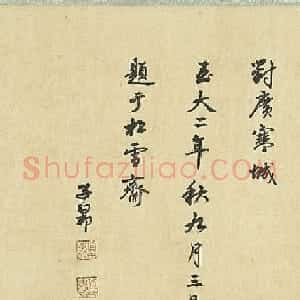 對廣寒城
至大二年秋九月三日
題于松雪齋
子昂
Shufaziliao.com